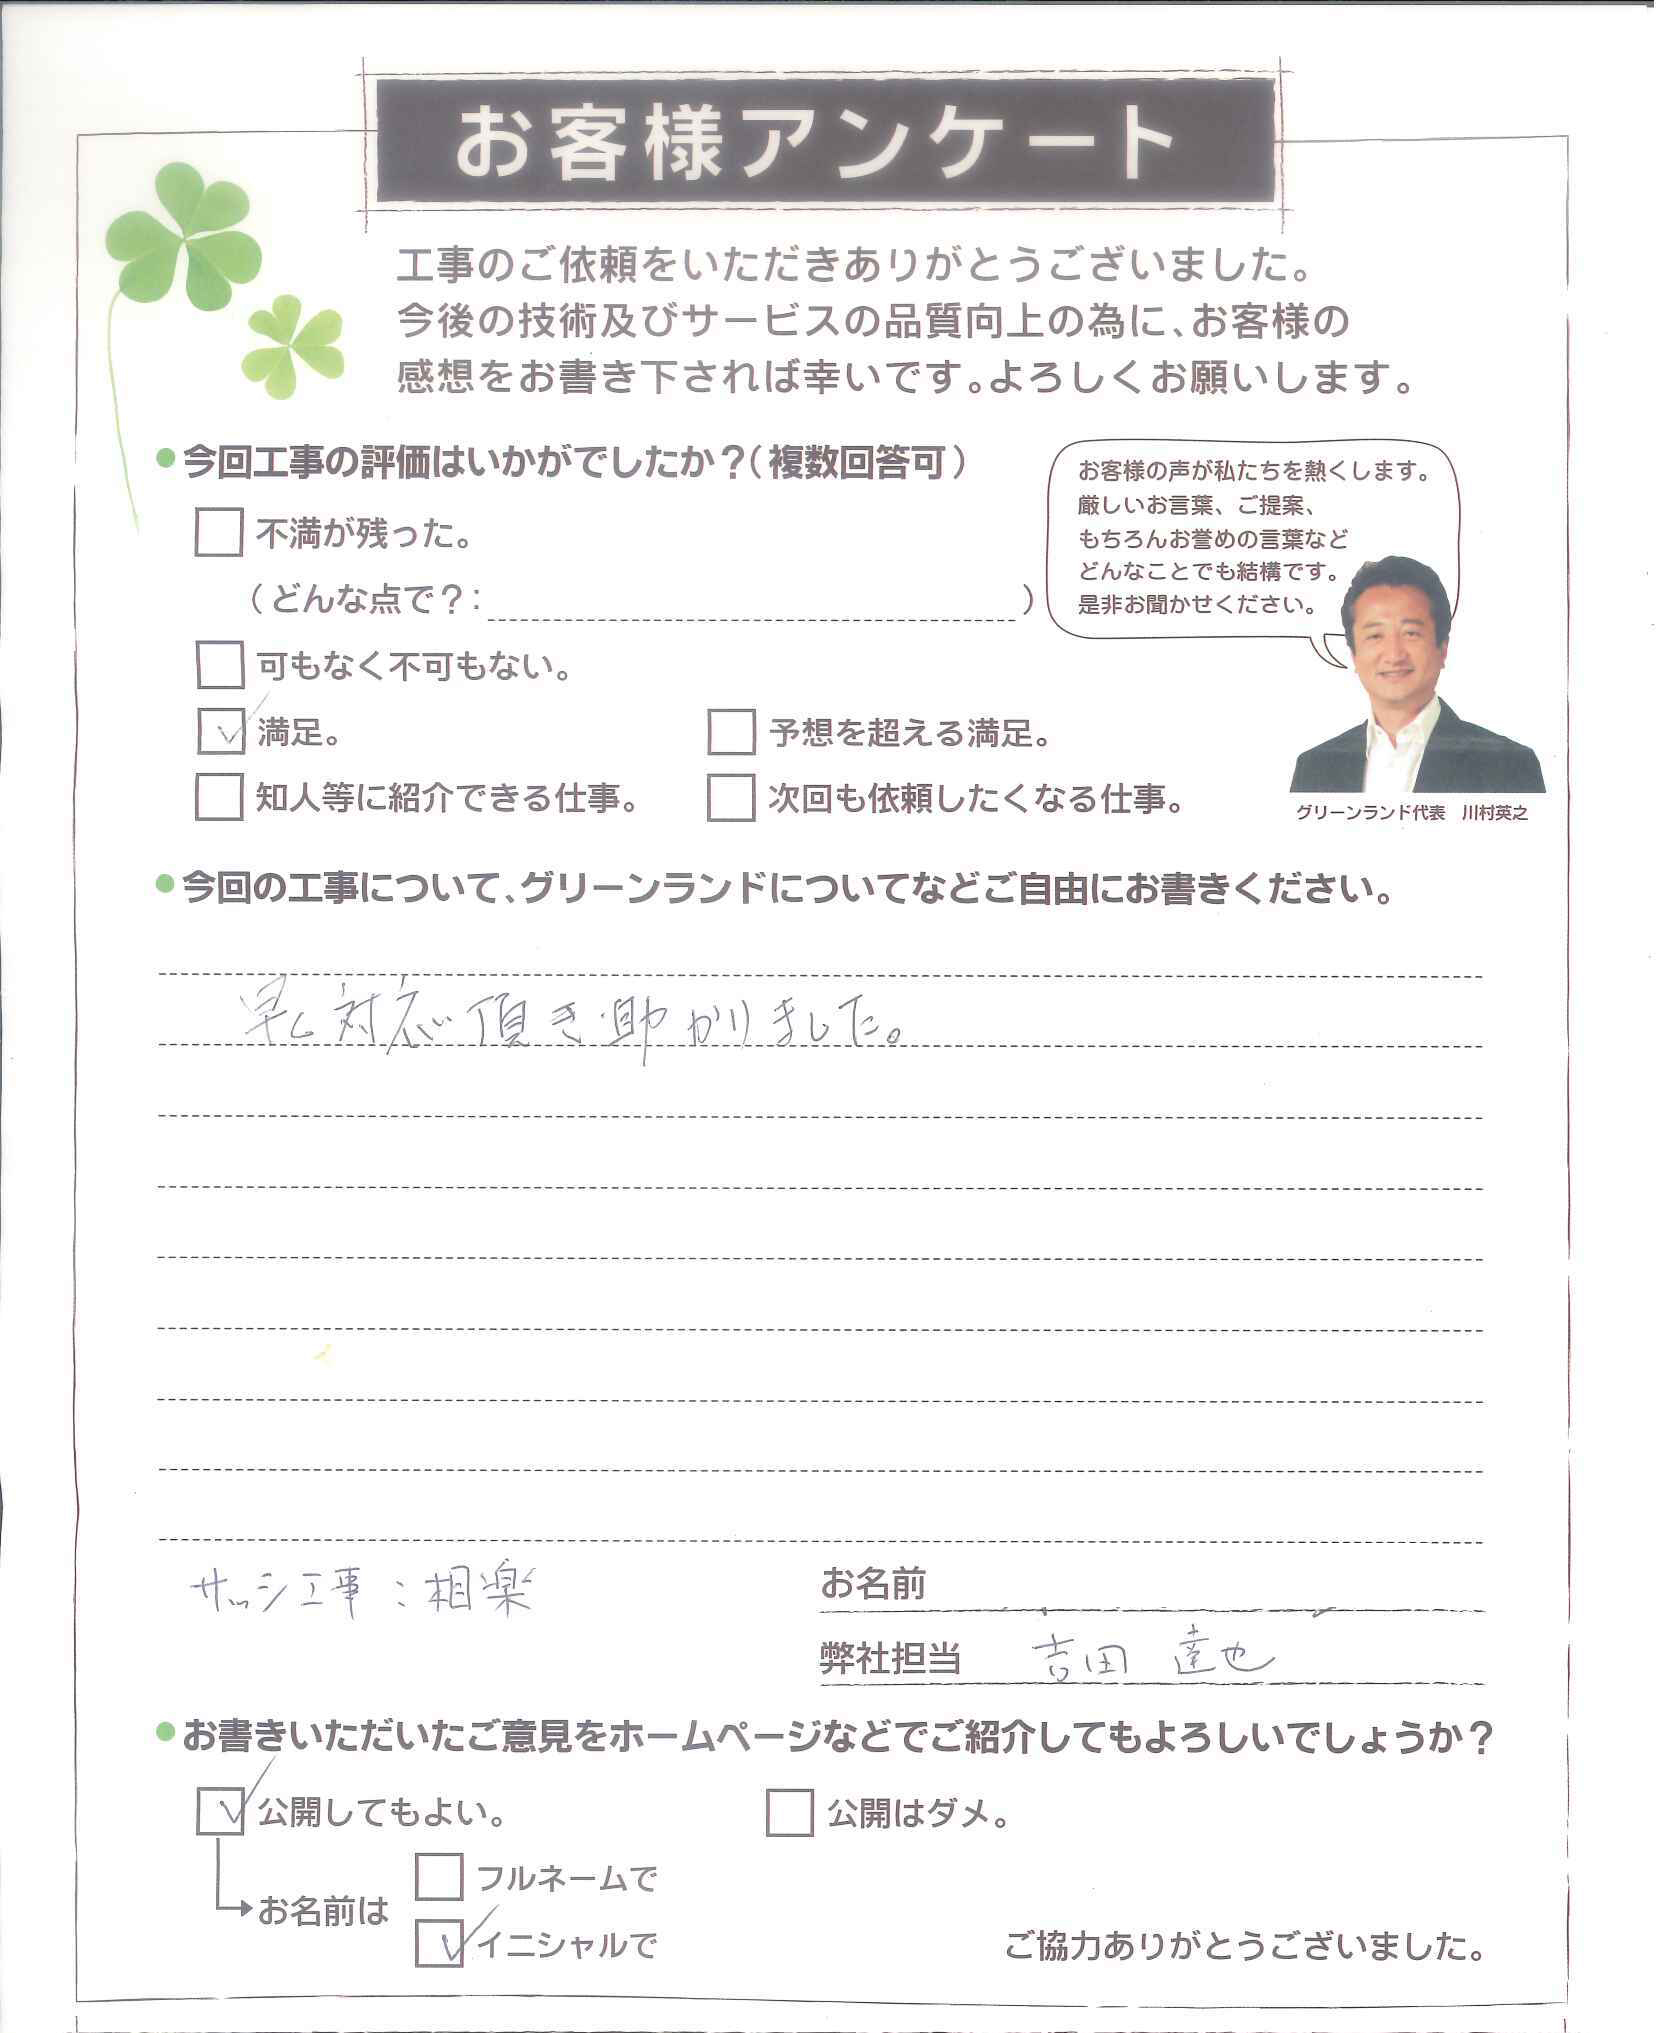 お客様アンケート
工事のご依頼をいただきありがとうございました。
今後の技術及びサービスの品質向上の為に、お客様の
感想をお書き下されば幸いです。よろしくお願いします。
●今回工事の評価はいかがでしたか？（複数回答可）
不満が残った。
（どんな点で？： ）
可もなく不可もない。
満足。
予想を超える満足。
知人等に紹介できる仕事。
次回も依頼したくなる仕事。
お客様の声が私たちを熱くします。
厳しいお言葉、ご提案、
もちろんお誉めの言葉など
どんなことでも結構です。
是非お聞かせください。
グリーンランド代表　川村英之
●今回の工事について、グリーンランドについてなどご自由にお書きください。
早く対応頂き助かりました。
サッシ工事：相楽
お名前
弊社担当　吉田 達也
●お書きいただいたご意見をホームページなどでご紹介してもよろしいでしょうか？
公開してもよい。
公開はダメ。
お名前は
フルネームで
イニシャルで
ご協力ありがとうございました。